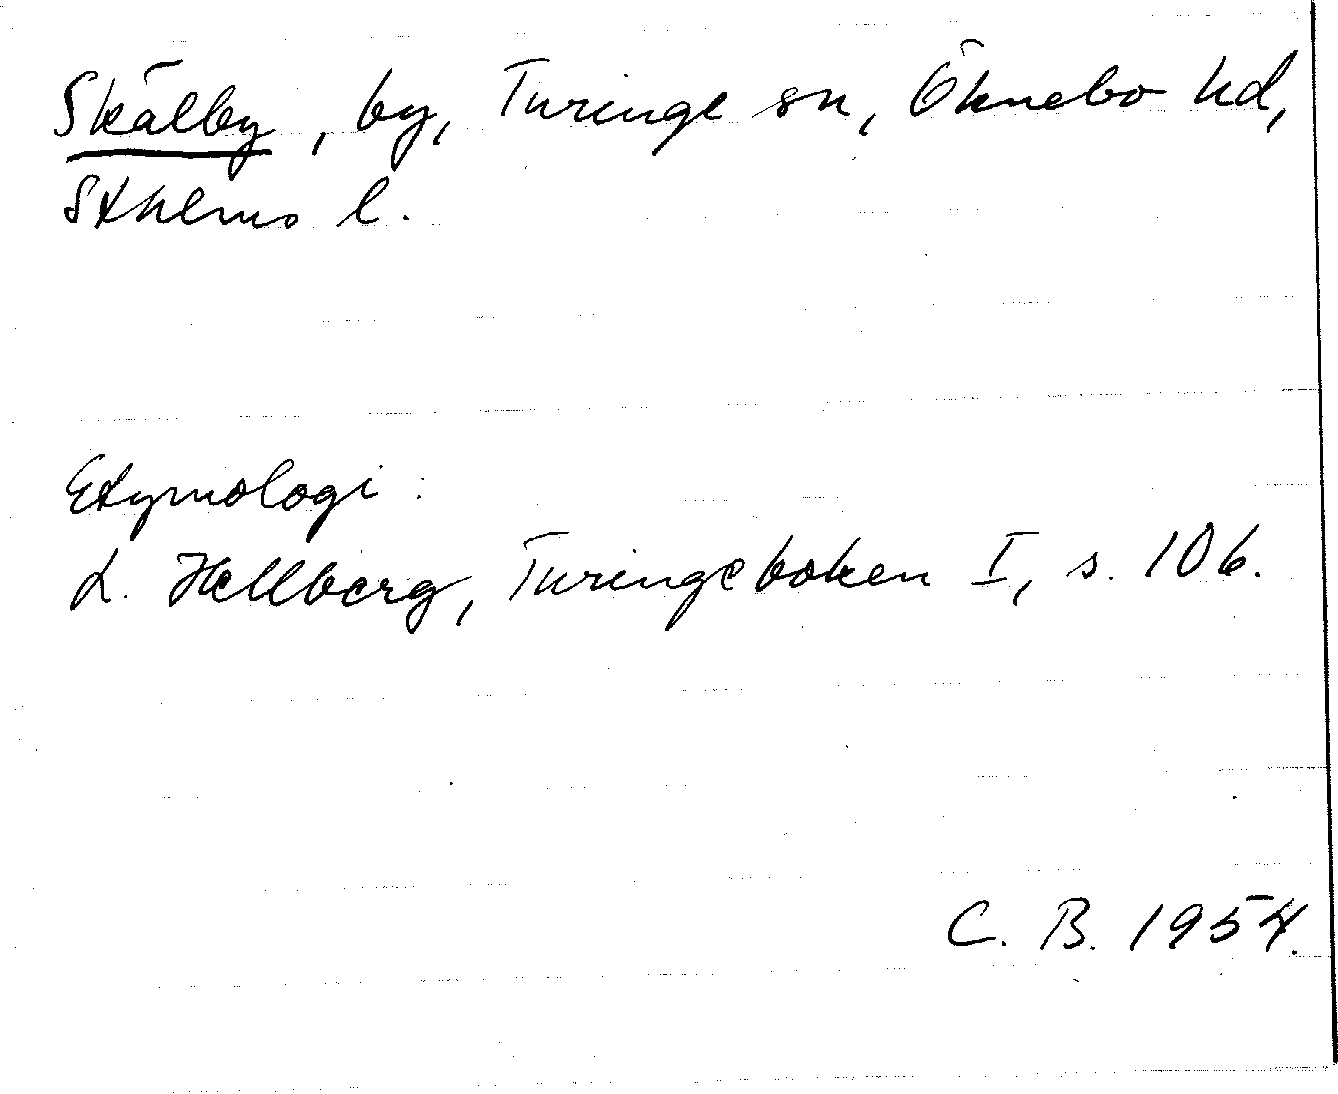 Skälby, by, Turinge sn, Öknebo hd,
Sthlms l.
Etymologi:
L. Hellberg, Turingeboken I, s. 106.
C. B. 1954.